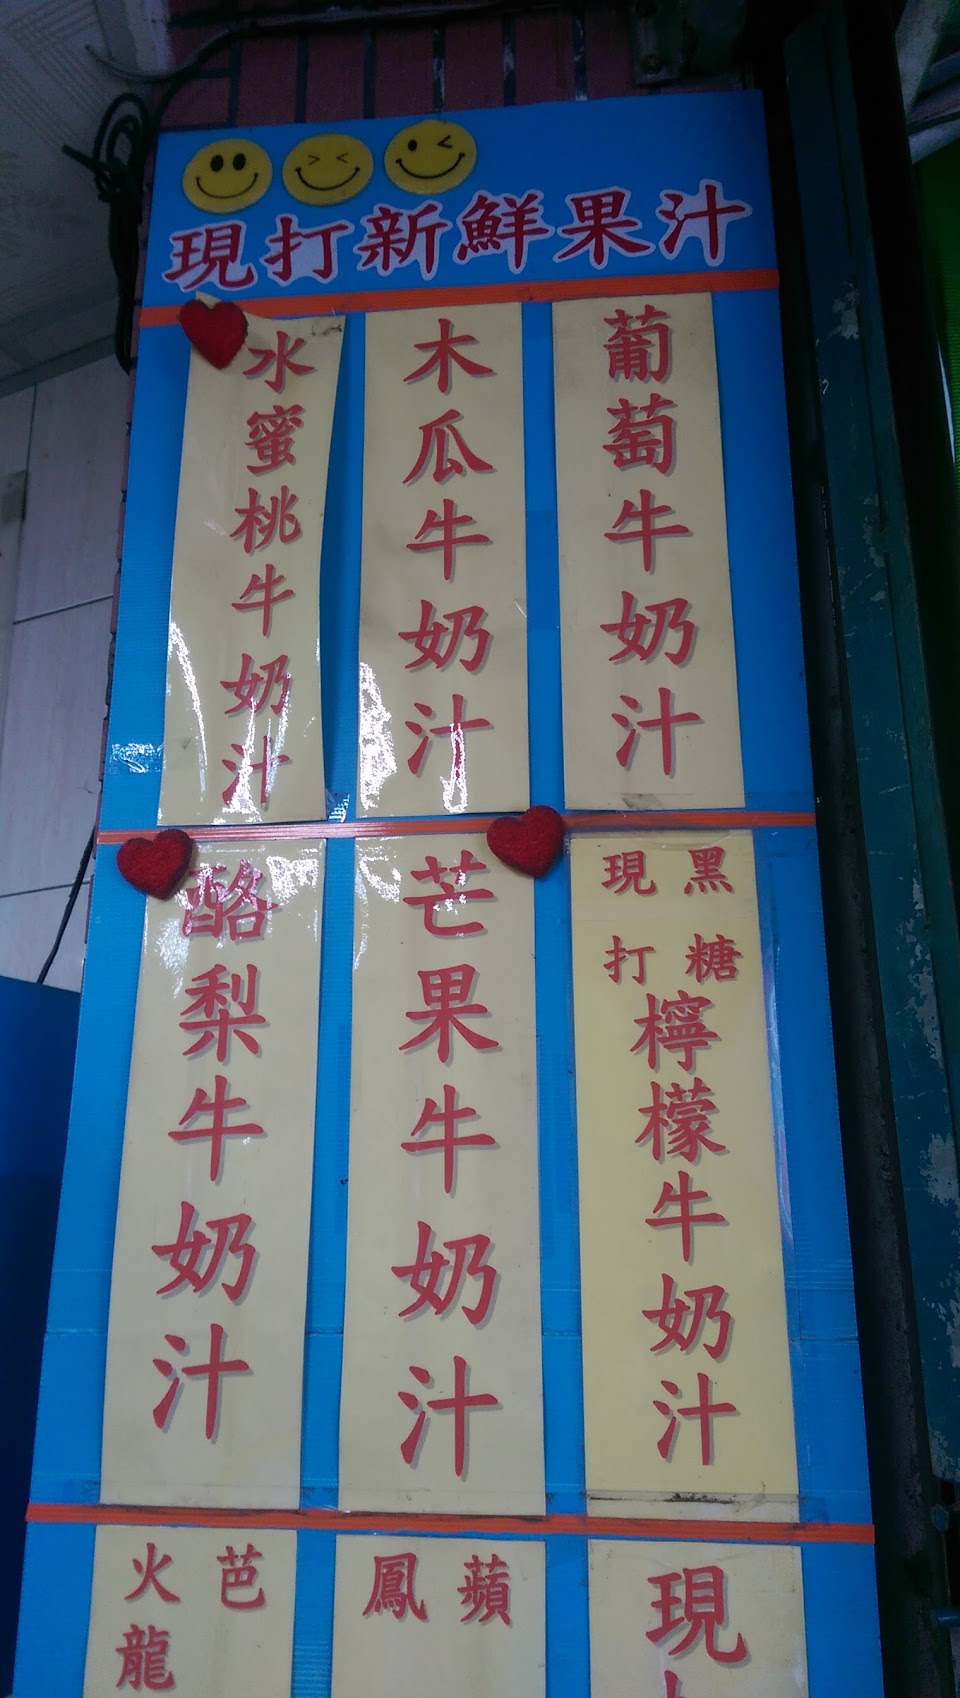 現打新鮮果汁
葡萄牛奶汁
木瓜牛奶汁
水蜜桃牛奶汁
黑糖
現打
檸檬牛奶汁
芒果牛奶汁
酪梨牛奶汁
現
蘋
鳳
芭
火龍